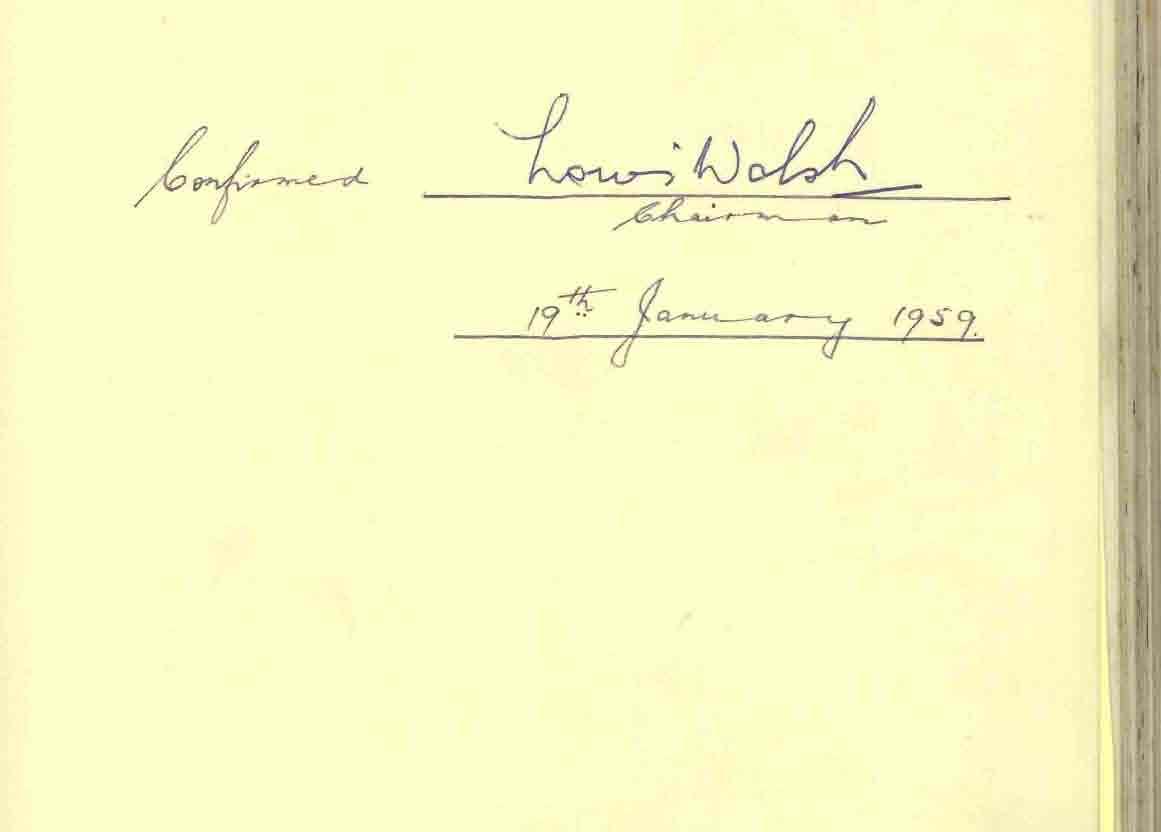 Confirmed Louis Walsh
Chairman
19th January 1959.